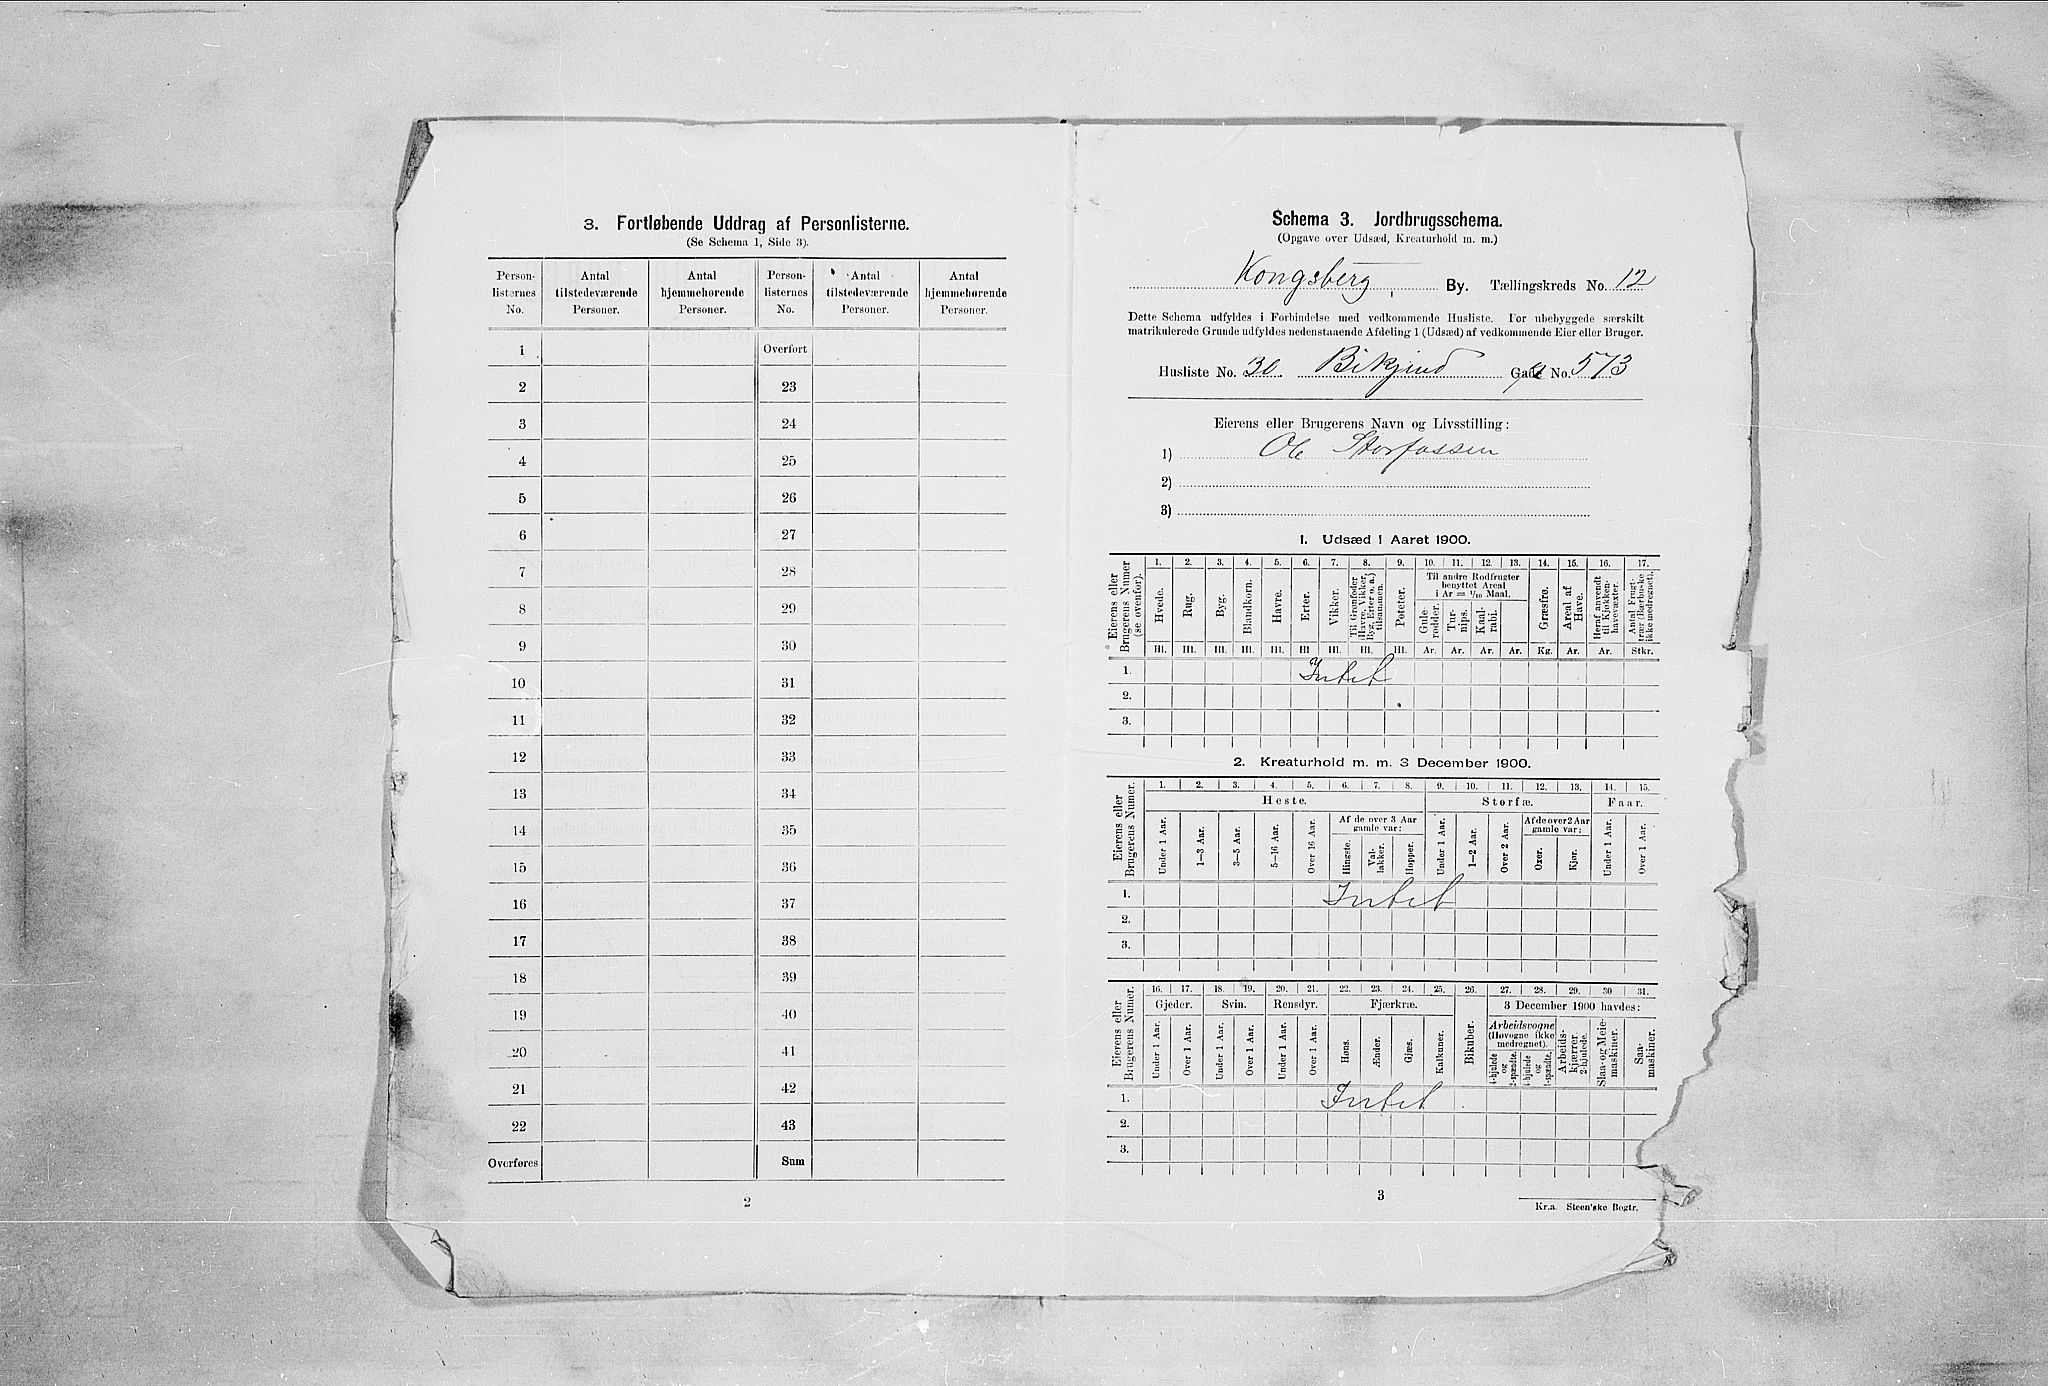 3. Fortløbende Uddrag af Personlisterne.
(Se Schema 1, Side 3).
Person-listernes No. | Antal tilstedeværende Personer. | Antal hjemmehørende Personer. | Person-listernes No. | Antal tilstedeværende Personer. | Antal hjemmehørende Personer.
1 | Overført
2 | 23
3 | 24
4 | 25
5 | 26
6 | 27
7 | 28
8 | 29
9 | 30
10 | 31
11 | 32
12 | 33
13 | 34
14 | 35
15 | 36
16 | 37
17 | 38
18 | 39
19 | 40
20 | 41
21 | 42
22 | 43
Overføres | Sum
2
Schema 3. Jordbrugsschema.
(Opgave over Udsæd, Kreaturhold m. m.)
Kongsberg By. Tællingskreds No. 12
Dette Schema udfyldes i Forbindelse med vedkommende Husliste. For ubebyggede særskilt
matrikulerede Grunde udfyldes nedenstaaende Afdeling 1 (Udsæd) af vedkommende Eier eller Bruger.
Husliste No. 30. Bikjind Gade No. 573
Eierens eller Brugerens Navn og Livsstilling:
1) Ole Storfossen
2)
3)
1. Udsæd i Aaret 1900.
Eierens eller Brugerens Numer (se ovenfor). | 1. | 2. | 3. | 4. | 5. | 6. | 7. | 8. | 9. | 10. | 11. | 12. | 13. | 14. | 15. | 16. | 17.
Til andre Rodfrugter benyttet Areal i Ar = 1/10 Maal.
Hvede. | Rug. | Byg. | Blandkorn. | Havre. | Erter. | Vikker. | Til Grønfoder (Havre, Vikker, Byg, Erter o. a.) tilsammen. | Poteter. | Gulerødder. | Turnips. | Kaalrabi. | Græsfrø. | Areal af Have. | Heraf anvendt til Kjøkkenhavevæxter. | Antal Frugttrær (Bærbuske ikke medregnet).
Hl. | Hl. | Hl. | Hl. | Hl. | Hl | Hl. | Hl. | Hl. | Ar. | Ar. | Ar. | Ar. | Kg. | Ar. | Ar. | Stkr.
1. Intet
2.
3.
2. Kreaturhold m. m. 3 December 1900.
Eierens eller Brugerens Numer. | 1. | 2. | 3. | 4. | 5. | 6. | 7. | 8. | 9. | 10. | 11. | 12. | 13. | 14. | 15.
Heste. | Storfæ. | Faar.
Af de over 3 Aar gamle var: | Af de over 2 Aar gamle var:
Under 1 Aar. | 1—3 Aar. | 3—5 Aar. | 5—16 Aar. | Over 16 Aar. | Hingste. | Vallakker. | Hopper. | Under 1 Aar. | 1—2 Aar. | Over 2 Aar. | Oxer. | Kjør. | Under 1 Aar. | Over 1 Aar.
1. Intet
2.
3.
Eierens eller Brugerens Numer. | 16. | 17. | 18. | 19. | 20. | 21. | 22. | 23. | 24. | 25. | 26. | 27. | 28. | 29. | 30 | 31.
Gjeder. | Svin. | Rensdyr. | Fjærkræ. | Bikuber. | 3 December 1900 havdes:
Arbeidsvogne (Høvogne ikke medregnet).
Under 1 Aar. | Over 1 Aar. | Under 1 Aar. | Over 1 Aar. | Under 1 Aar. | Over 1 Aar. | Høns. | Ænder. | Gjæs. | Kalkuner. | 4-hjulede og 2-spændte. | 4-hjulede og 1-spændte. | Arbeidskjærrer 2-hjulede. | Slaa- og Meiemaskiner. | Saamaskiner.
1. Intet
2.
3.
3
Kr.a. Steen'ske Bogtr.